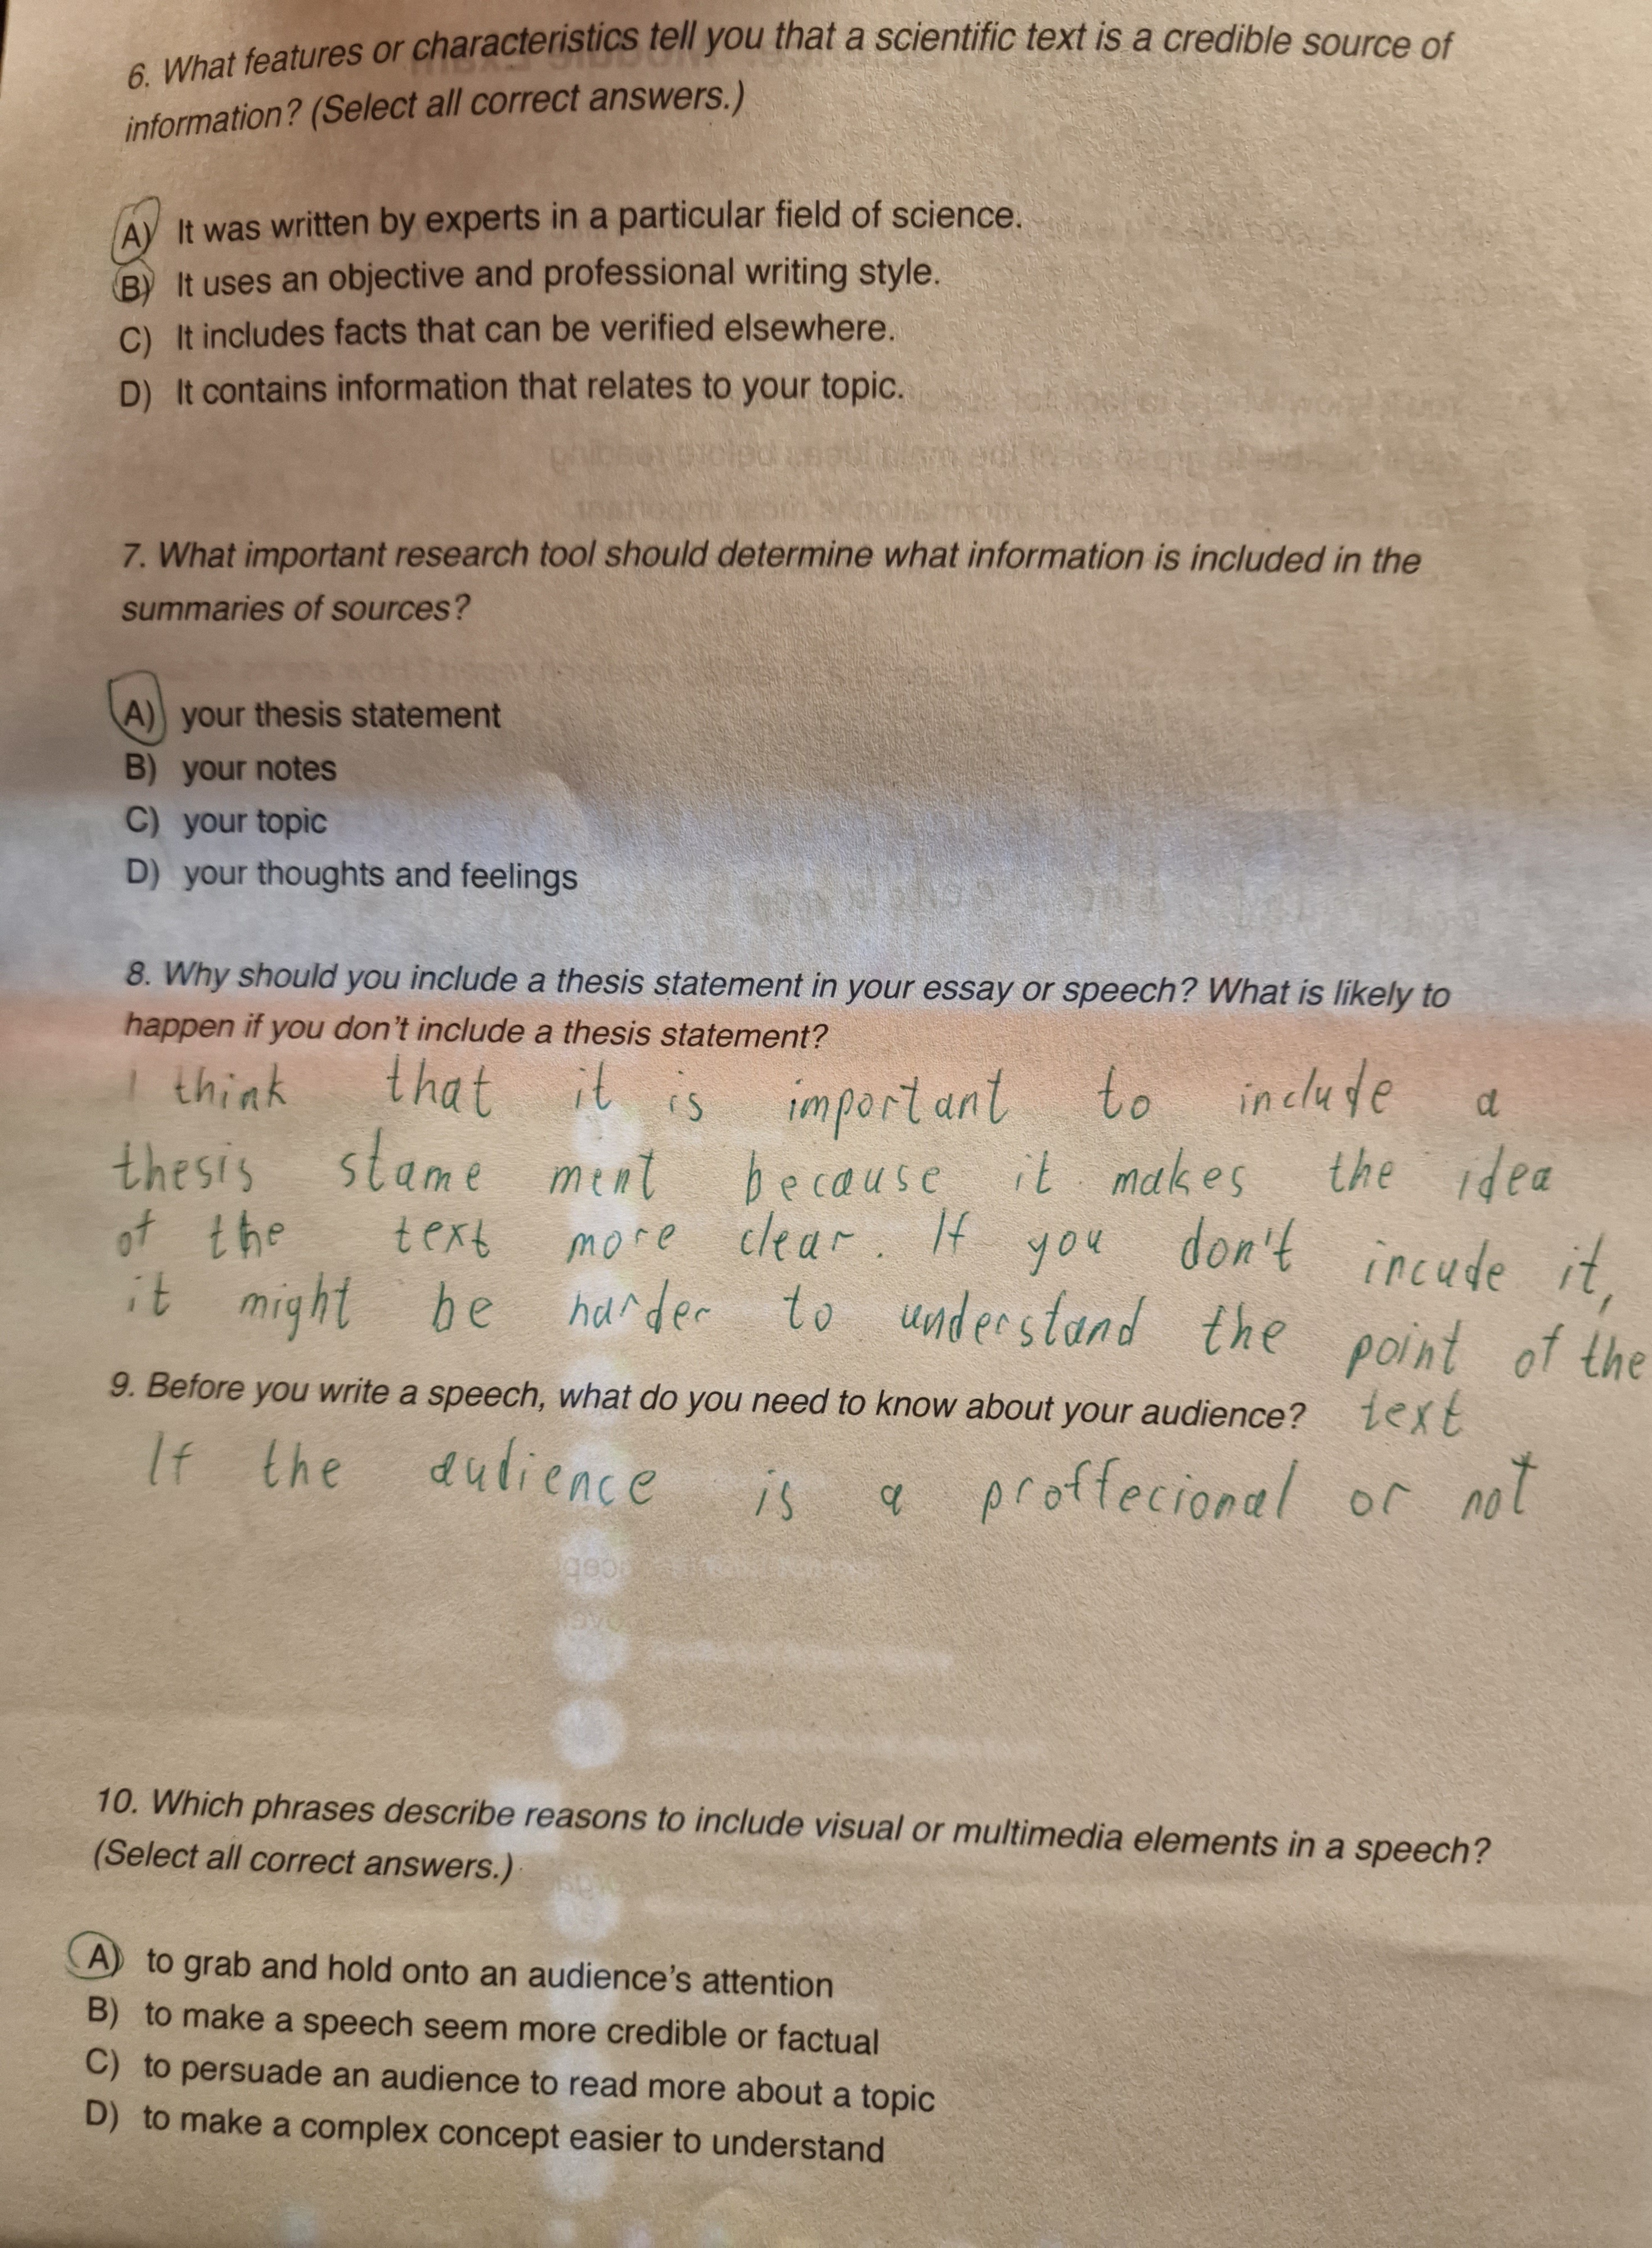 6. What features or characteristics tell you that a scientific text is a credible source of
information? (Select all correct answers.)
A) It was written by experts in a particular field of science.
B) It uses an objective and professional writing style.
C) It includes facts that can be verified elsewhere.
D) It contains information that relates to your topic.
7. What important research tool should determine what information is included in the
summaries of sources?
A) your thesis statement
B) your notes
C) your topic
D) your thoughts and feelings
8. Why should you include a thesis statement in your essay or speech? What is likely to
happen if you don't include a thesis statement?
I think that it is important to include a
thesis stame ment because it makes the idea
of the text more clear. If you don't incude it,
it might be harder to understand the point of the
text
9. Before you write a speech, what do you need to know about your audience?
If the audience is a proffecional or not
10. Which phrases describe reasons to include visual or multimedia elements in a speech?
(Select all correct answers.)
A) to grab and hold onto an audience's attention
B) to make a speech seem more credible or factual
C) to persuade an audience to read more about a topic
D) to make a complex concept easier to understand